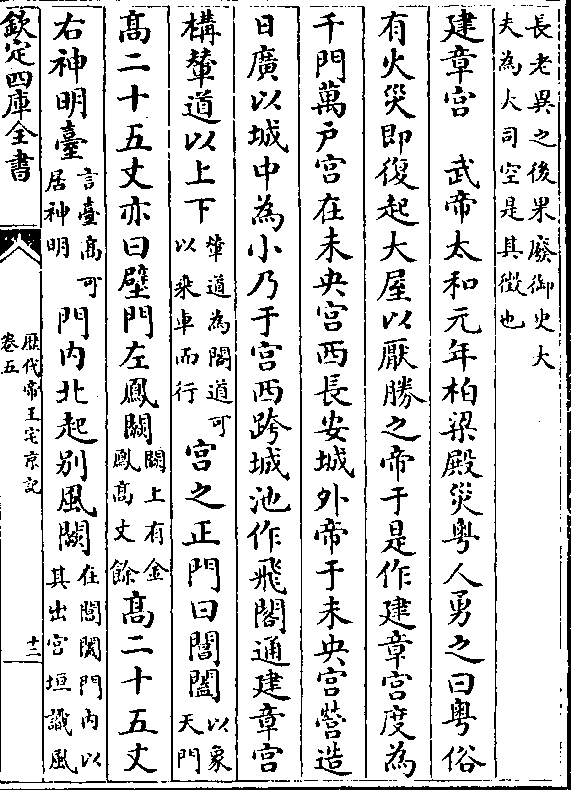 長老異之後果廢御史大
夫為大司空是其徵也
建章宫　武帝太和元年柏梁殿災粤人勇之曰粤俗
有火災即復起大屋以厭勝之帝于是作建章宫度為
千門萬户宫在未央宫西長安城外帝于未央宫營造
日廣以城中為小乃于宫西跨城池作飛閣通建章宫
構輦道以上下輦道為閣道可以乘車而行宫之正門曰閶闔以象天門
高二十五丈亦曰壁門左鳳闕闕上有金鳳高丈餘高二十五丈
右神明臺言臺高可居神明門内北起别風闕在閶闔門内以其出宫垣識風
欽定四庫全書
歴代帝王宅京記
卷五
十二